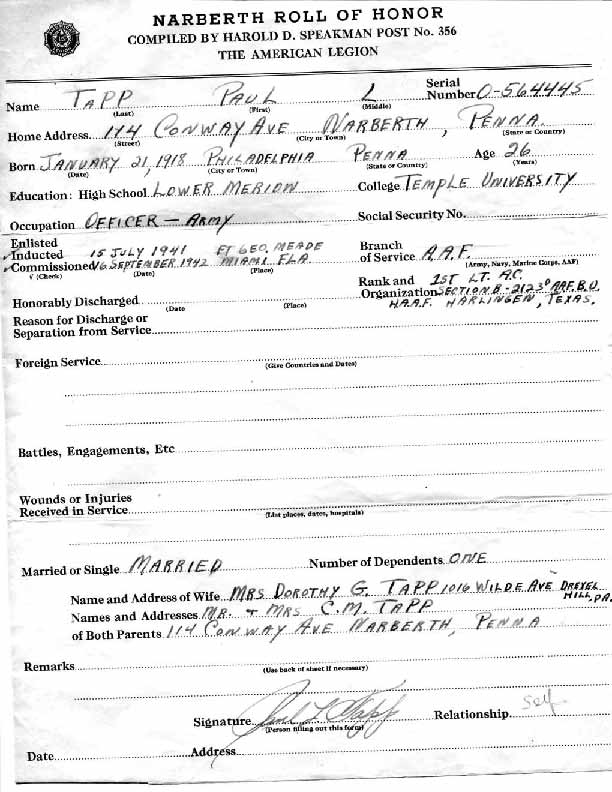 NARBERTH ROLL OF HONOR
COMPILED BY HAROLD D. SPEAKMAN POST No. 356
THE AMERICAN LEGION
Name TAPP PAUL L Serial Number O-564445
(Last) (First) (Middle)
Home Address 114 CONWAY AVE NARBERTH, PENNA
(Street) (City or Town) (State or Country)
Born JANUARY 21, 1918 PHILADELPHIA PENNA Age 26
(Date) (City or Town) (State or Country) (Years)
Education: High School LOWER MERION College TEMPLE UNIVERSITY
Occupation OFFICER — ARMY Social Security No.
Enlisted
✓Inducted 15 JULY 1941 FT GEO. MEADE Branch of Service A.A.F.
✓Commissioned 16 SEPTEMBER 1942 MIAMI FLA. (Army, Navy, Marine Corps, AAF)
√ (Check) (Date) (Place)
Rank and Organization 1ST LT. A.C.
SECTION B - 2123D AAF.B.U.
H.A.A.F. HARLINGEN, TEXAS.
Honorably Discharged
(Date (Place)
Reason for Discharge or
Separation from Service
Foreign Service
(Give Countries and Dates)
Battles, Engagements, Etc
Wounds or Injuries
Received in Service
(List places, dates, hospitals)
Married or Single MARRIED Number of Dependents ONE
Name and Address of Wife MRS DOROTHY G. TAPP 1016 WILDE AVE DREXEL HILL, PA.
Names and Addresses MR. + MRS C.M. TAPP
of Both Parents 114 CONWAY AVE NARBERTH, PENNA
Remarks
(Use back of sheet if necessary)
Signature Paul L Tapp Relationship Self
(Person filling out this form)
Date Address